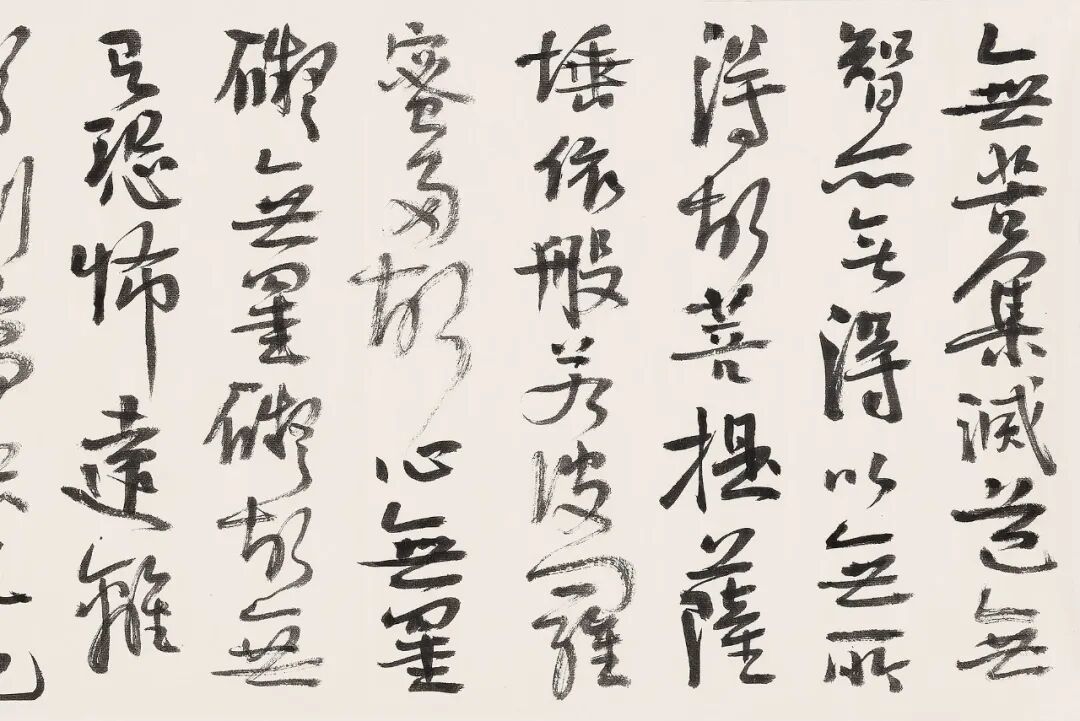 無苦集滅道無
智亦無得以無所
得故菩提薩
埵依般若波羅
蜜多故心無罣
礙無罣礙故無
有恐怖遠離